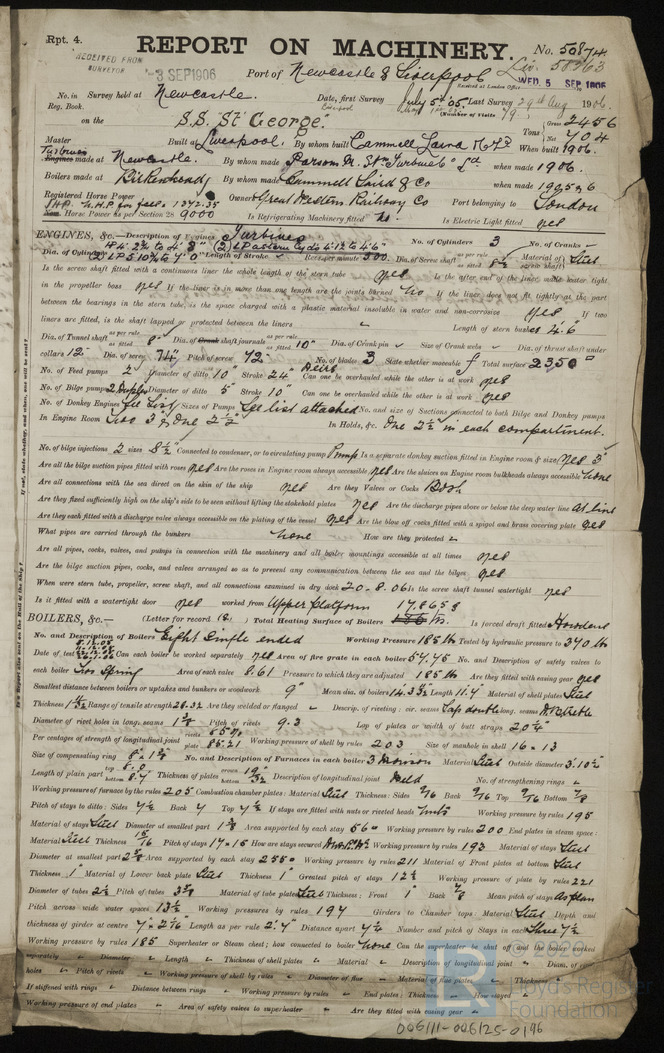 Rpt. 4.
REPORT ON MACHINERY.
No. 50874
RECEIVED FROM SURVEYOR
3 SEP 1906
Port of Newcastle & Liverpool
Liv. 58363
Received at London Office WED. 5 SEP 1906
No. in Reg. Book. Survey held at Newcastle. Date, first Survey July 5th 05. Last Survey 29th Aug 1906.
(Number of Visits 79)
on the S.S. "St George".
Tons Gross 2456 Net 704
Master Built at Liverpool. By whom built Cammell Laird When built 1906.
Turbines Engines made at Newcastle. By whom made Parsons M. Stm Turbine Co Ld when made 1906.
Boilers made at Birkenhead By whom made Cammell Laird & Co when made 1905 & 6
Registered Horse Power Owners Great Western Railway Co Port belonging to London
Nom. Horse Power as per Section 28 9000 Is Refrigerating Machinery fitted no. Is Electric Light fitted yes
ENGINES, &c.—Description of Engines Turbines No. of Cylinders 3 No. of Cranks
Dia. of Cylinders Length of Stroke Revs. per minute 500. Dia. of Screw shaft Material of screw shaft Steel
Is the screw shaft fitted with a continuous liner the whole length of the stern tube yes Is the after end of the liner made water tight
in the propeller boss yes If the liner is in more than one length are the joints burned no If the liner does not fit tightly at the part
between the bearings in the stern tube, is the space charged with a plastic material insoluble in water and non-corrosive yes If two
liners are fitted, is the shaft lapped or protected between the liners Length of stern bush 4.6
Dia. of Tunnel shaft as per rule as fitted 8" Dia. of Crank shaft journals as per rule as fitted 10" Dia. of Crank pin Size of Crank webs Dia. of thrust shaft under
collars 12" Dia. of screw 74" Pitch of screw 72" No. of blades 3 State whether moveable Total surface 2350
No. of Feed pumps 2 Diameter of ditto 10" Stroke 24" Can one be overhauled while the other is at work yes
No. of Bilge pumps 2 Duplex Diameter of ditto 5" Stroke 10" Can one be overhauled while the other is at work yes
No. of Donkey Engines See List Sizes of Pumps See list attached No. and size of Suctions connected to both Bilge and Donkey pumps
In Engine Room Two 3" & One 2 1/2" In Holds, &c. One 2 1/2 in each compartment.
No. of bilge injections 2 sizes 8 1/2" Connected to condenser, or to circulating pump Pump Is a separate donkey suction fitted in Engine room & size yes 3"
Are all the bilge suction pipes fitted with roses yes Are the roses in Engine room always accessible yes Are the sluices on Engine room bulkheads always accessible none
Are all connections with the sea direct on the skin of the ship yes Are they Valves or Cocks Both
Are they fixed sufficiently high on the ship's side to be seen without lifting the stokehold plates yes Are the discharge pipes above or below the deep water line at line
Are they each fitted with a discharge valve always accessible on the plating of the vessel yes Are the blow off cocks fitted with a spigot and brass covering plate yes
What pipes are carried through the bunkers none How are they protected
Are all pipes, cocks, valves, and pumps in connection with the machinery and all boiler mountings accessible at all times yes
Are the bilge suction pipes, cocks, and valves arranged so as to prevent any communication between the sea and the bilges yes
When were stern tube, propeller, screw shaft, and all connections examined in dry dock 20-8-06 Is the screw shaft tunnel watertight yes
Is it fitted with a watertight door yes worked from Upper platform
BOILERS, &c.— (Letter for record (S.)) Total Heating Surface of Boilers 17,865 Is forced draft fitted Howdens
No. and Description of Boilers Eight Single ended Working Pressure 185 lb Tested by hydraulic pressure to 370 lb
Date of test Can each boiler be worked separately yes Area of fire grate in each boiler 54.75 No. and Description of safety valves to
each boiler Two Spring Area of each valve 8.61 Pressure to which they are adjusted 185 lb. Are they fitted with easing gear yes
Smallest distance between boilers or uptakes and bunkers or woodwork 9" Mean dia. of boilers Length 11.4" Material of shell plates Steel
Thickness Range of tensile strength Are they welded or flanged Descrip. of riveting: cir. seams Lap double long. seams
Diameter of rivet holes in long. seams Pitch of rivets 9.3 Lap of plates or width of butt straps 20 1/4"
Per centages of strength of longitudinal joint rivets plate 85.21 Working pressure of shell by rules 203 Size of manhole in shell 16 × 13
Size of compensating ring No. and Description of Furnaces in each boiler 3 Morison Material Steel Outside diameter 3.10 1/2"
Length of plain part top bottom 8.4 Thickness of plates crown bottom Description of longitudinal joint Weld No. of strengthening rings
Working pressure of furnace by the rules 205 Combustion chamber plates: Material Steel Thickness: Sides 9/16 Back 9/16 Top 9/16 Bottom 7/8
Pitch of stays to ditto: Sides 7 1/2 Back 7 Top 7 1/2 If stays are fitted with nuts or riveted heads nuts Working pressure by rules 195
Material of stays Steel Diameter at smallest part Area supported by each stay 56 Working pressure by rules 200 End plates in steam space:
Material Steel Thickness 15/16 Pitch of stays 17 × 15 How are stays secured Working pressure by rules 193 Material of stays Steel
Diameter at smallest part Area supported by each stay 255 Working pressure by rules 211 Material of Front plates at bottom Steel
Thickness 1" Material of Lower back plate Steel Thickness 1" Greatest pitch of stays 12 1/2 Working pressure of plate by rules 221
Diameter of tubes 2 1/2 Pitch of tubes 3 5/8 Material of tube plates Steel Thickness: Front 1" Back 7/8 Mean pitch of stays As plan
Pitch across wide water spaces 13 1/2 Working pressures by rules 194 Girders to Chamber tops: Material Steel Depth and
thickness of girder at centre Length as per rule Distance apart 7 1/4 Number and pitch of Stays in each Three 7 1/2
Working pressure by rules 185 Superheater or Steam chest; how connected to boiler none Can the superheater be shut off and the boiler worked
separately Diameter Length Thickness of shell plates Material Description of longitudinal joint Diam. of rivet
holes Pitch of rivets Working pressure of shell by rules Diameter of flue Material of flue plates Thickness
If stiffened with rings Distance between rings Working pressure by rules End plates: Thickness How stayed
Working pressure of end plates Area of safety valves to superheater Are they fitted with easing gear
© 2026
Lloyd's Register Foundation
006111-006125-0196